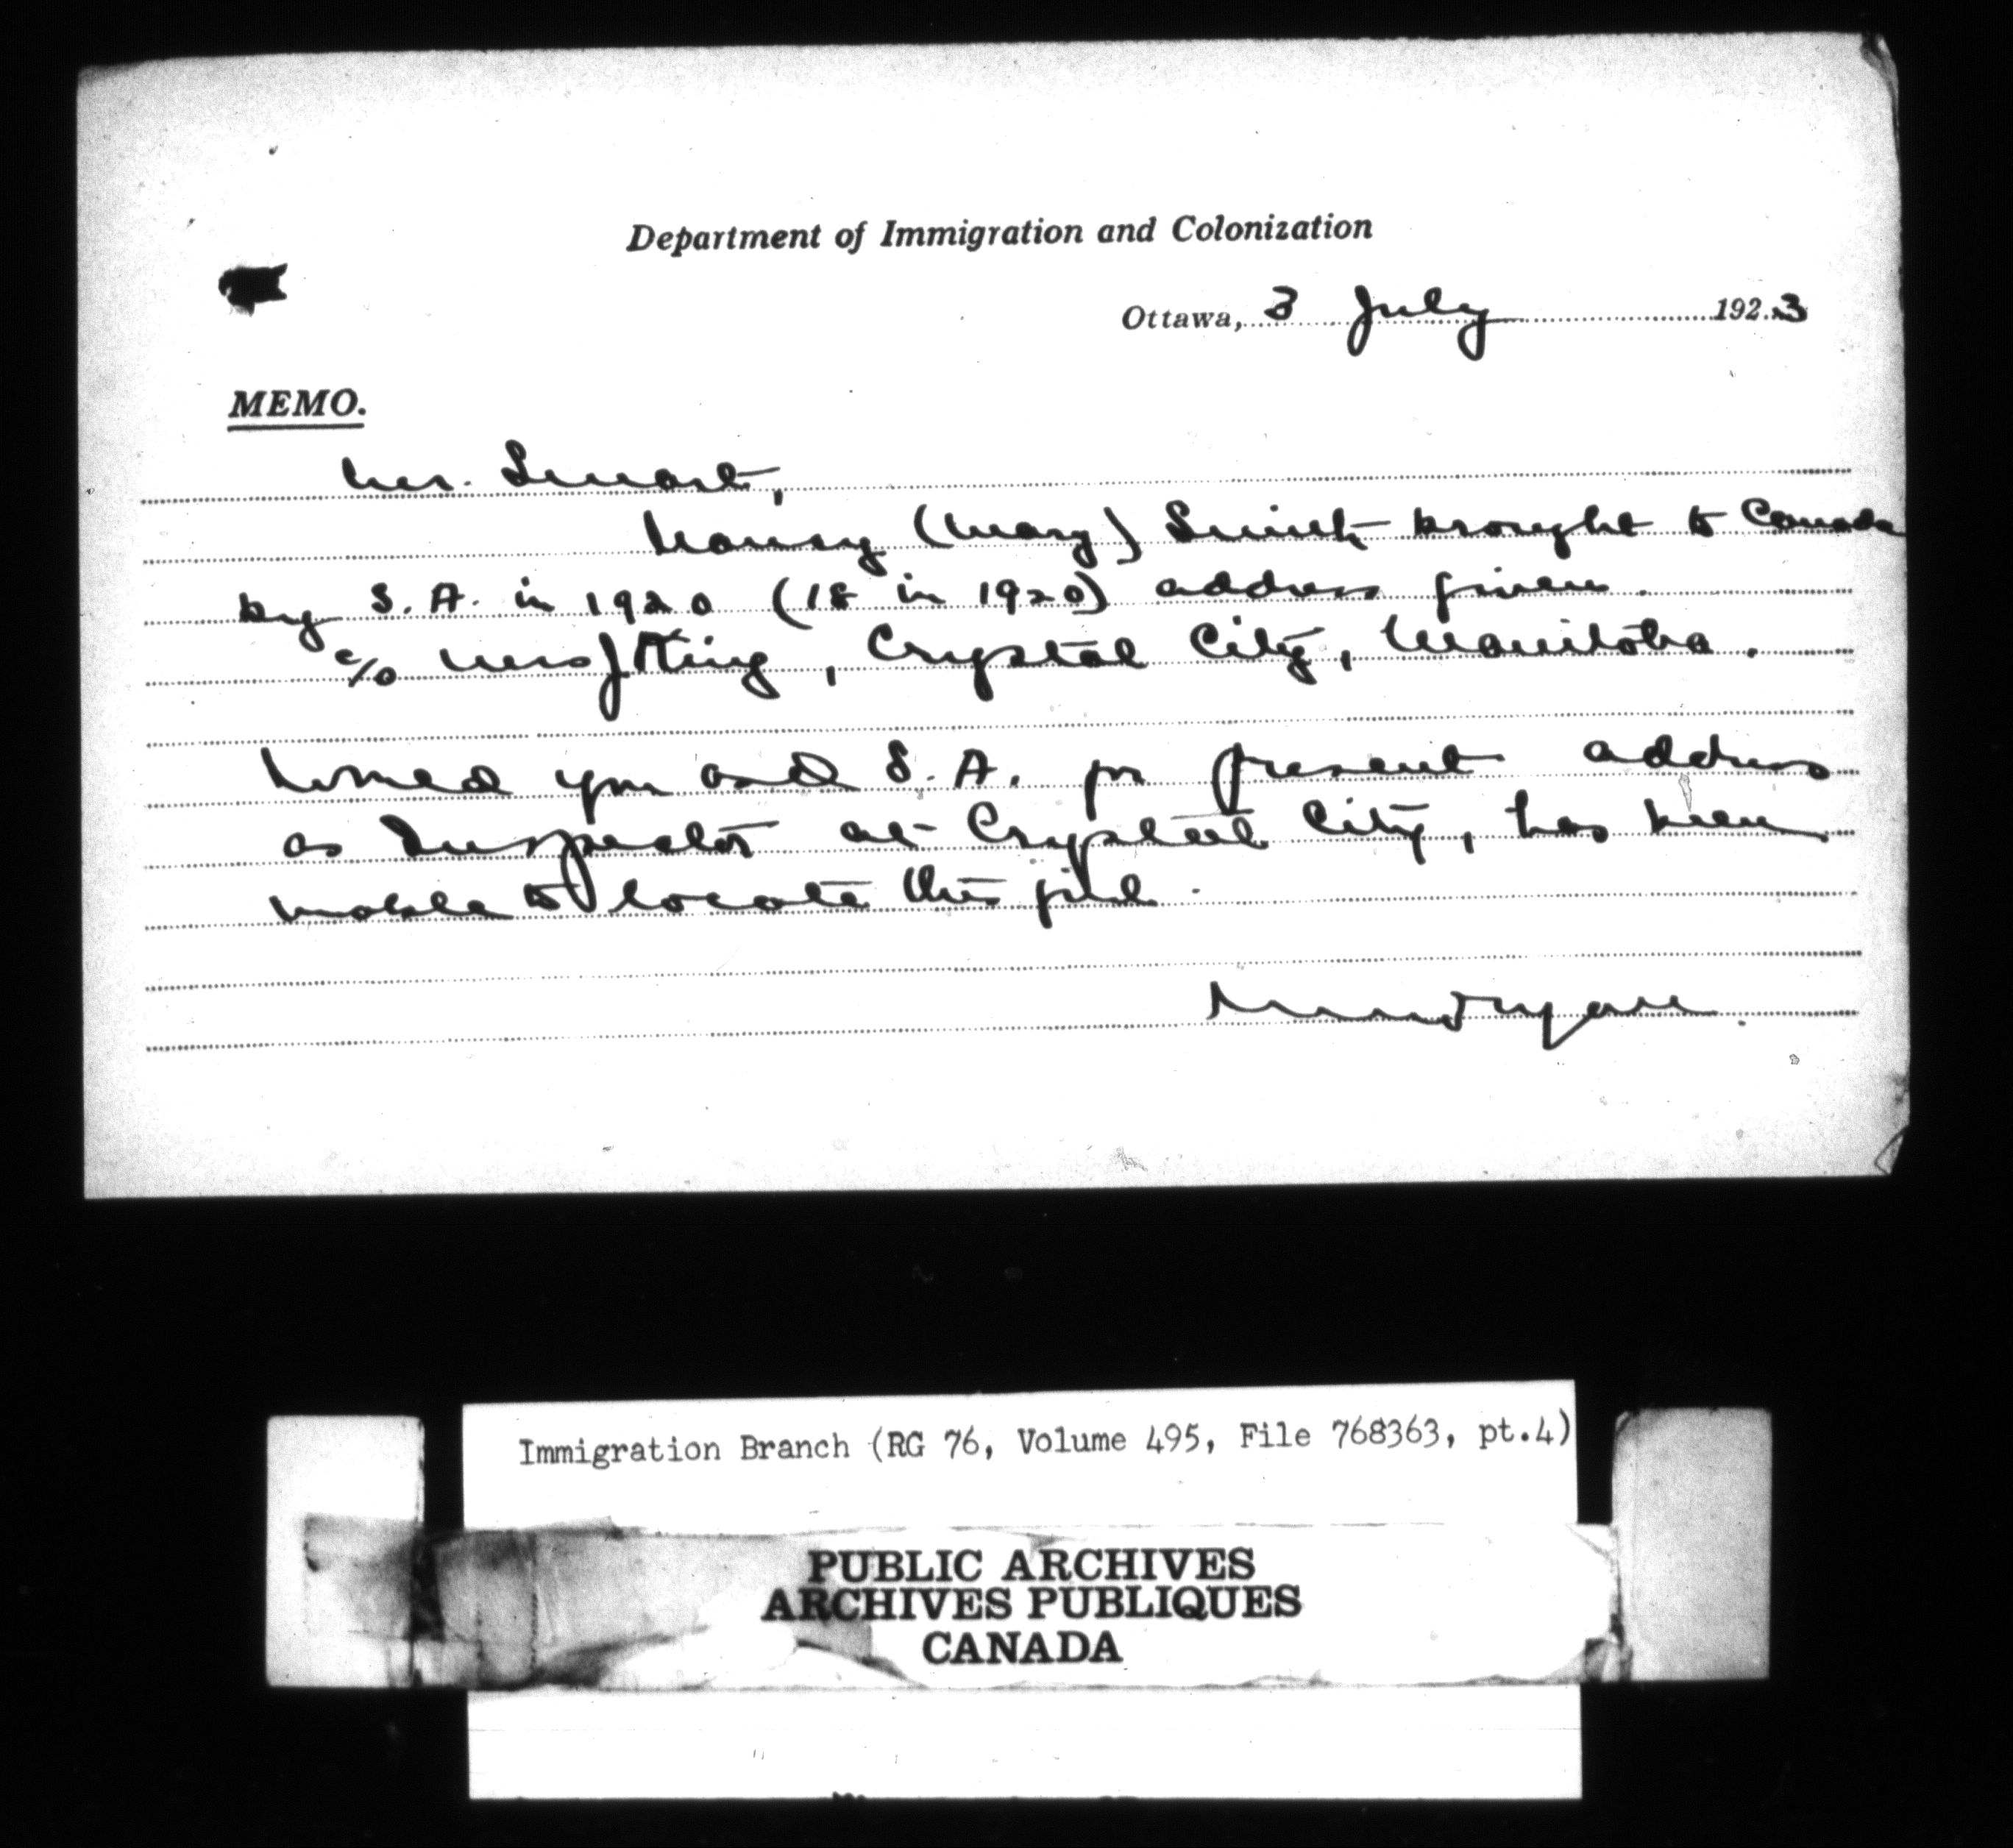 Department of Immigration and Colonization
Ottawa, 3 July 1923
MEMO.
Mr. Smart,
Nancy (Mary) Smith brought to Canada
by S.A. in 1920 (18 in 1920) address given.
c/o Mrs J King, Crystal City, Manitoba.
you and S.A. for present address
as Inspector at Crystal City, has been
unable to locate this girl.
Immigration Branch (RG 76, Volume 495, File 768363, pt.4)
PUBLIC ARCHIVES
ARCHIVES PUBLIQUES
CANADA